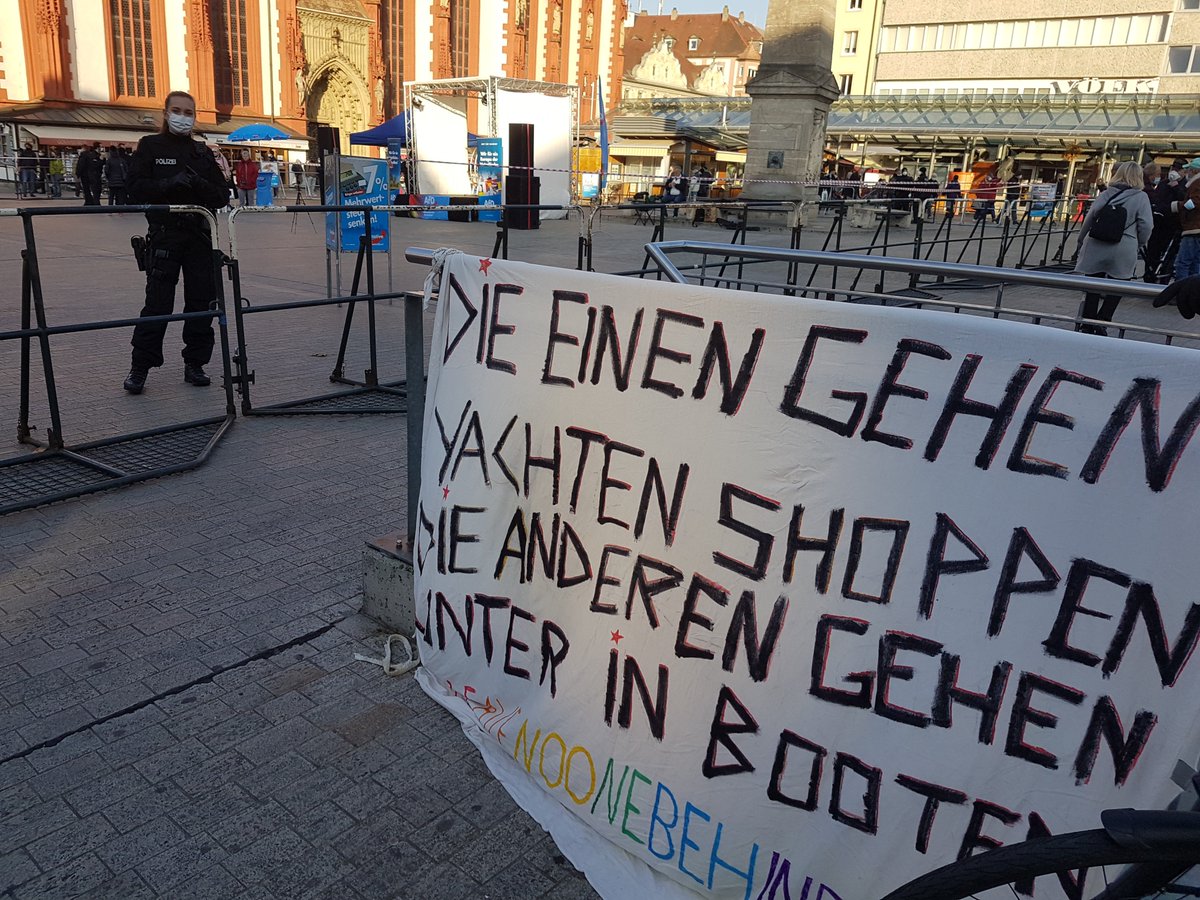 POLIZEI
AfD
7%
Mehrwert-
steuer
senken!
VÖLK
DIE EINEN GEHEN
YACHTEN SHOPPEN
DIE ANDEREN GEHEN
UNTER IN BOOTEN
LEAVENOONEBEHIND